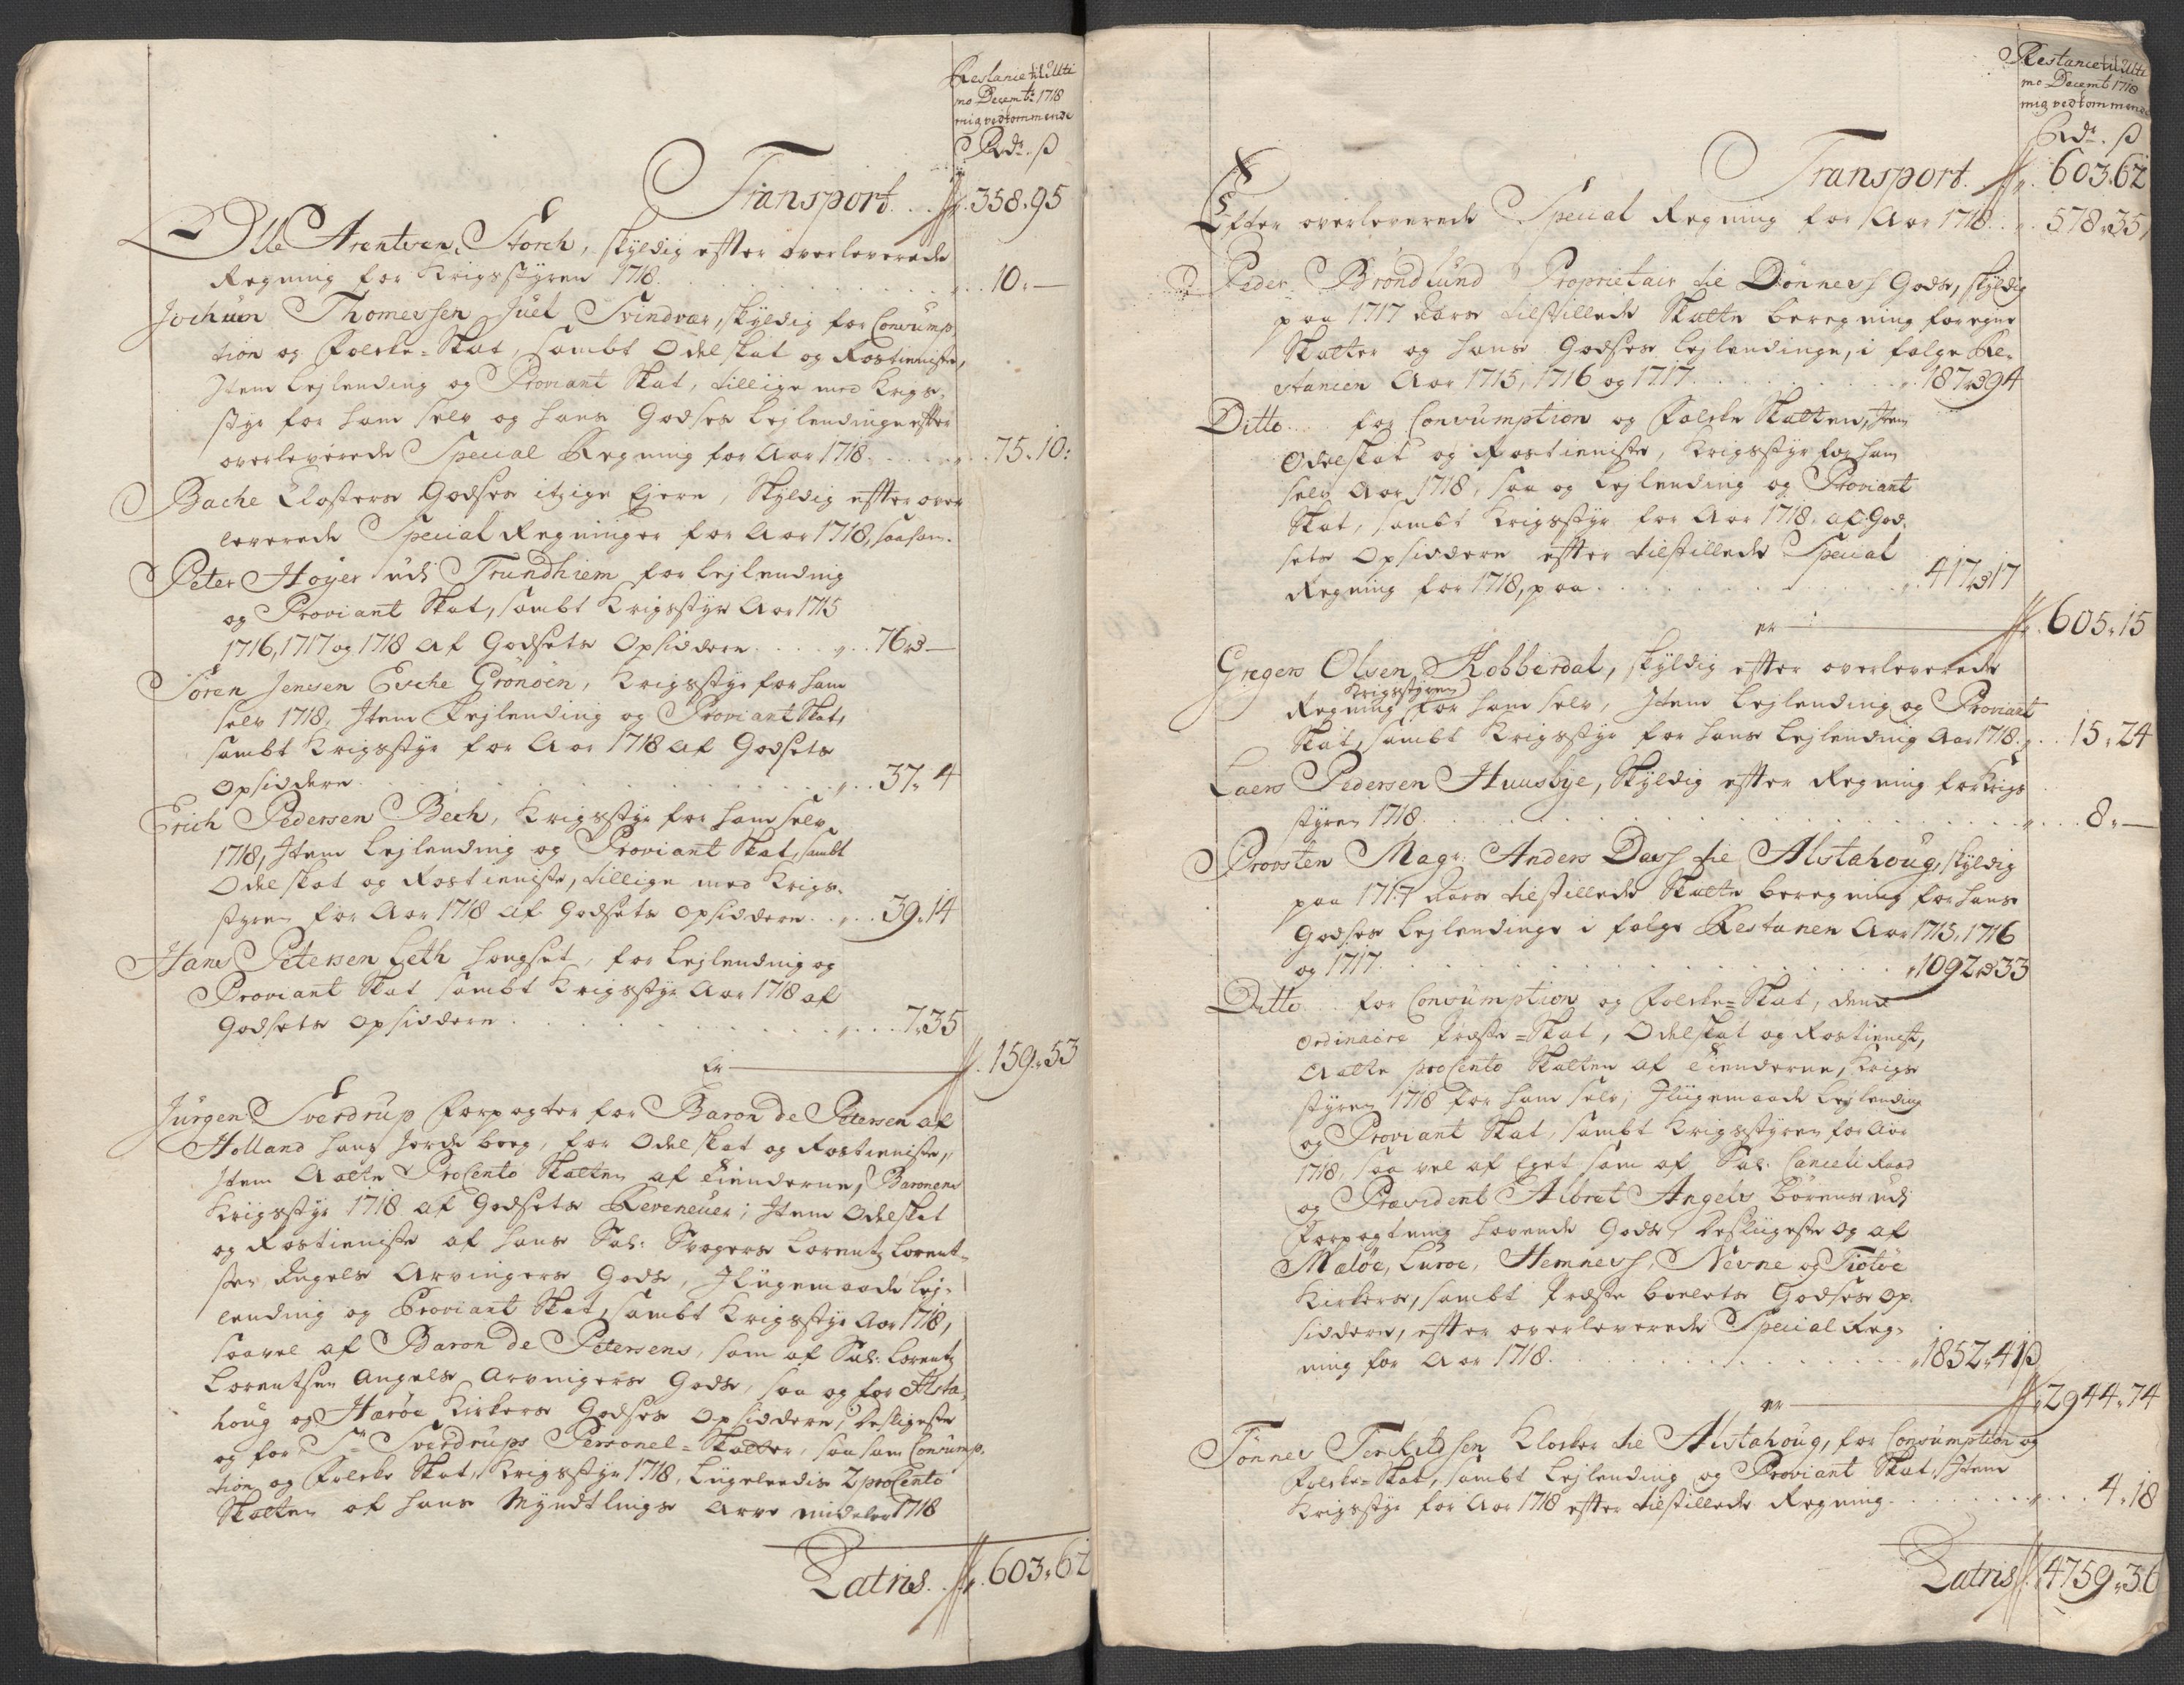 Restance til Ulti
mo Decembr 1718
mig vedkommende
Rdr. ß
Transport. . . 358.95
Olle Arentsen Storch, skyldig efter overleverede
Regning for Krigsstyren 1718. . . 10.—
Jochum Thomessen Juel Svindvær, skyldig for Consump
tion og Folcke-Skat, sambt Odelskat og Rostieniste,
Item Lejlending og Proviant Skat, tillige med Krigs-
styr for ham selv og hans Godses Lejlendinge efter
overleverede Special Regning for Aar 1718. . . 75.10:
Bache Closters Godses itzige Ejere, Skyldig efter over
leverede Special Regninger for Aar 1718, saasom.
Peter Høyer udi Trundhiem for Lejlending
og Proviant Skat, sambt Krigsstyr Aar 1715
1716, 1717 og 1718 af Godsets Opsiddere. . . 76.—
Søren Jensen Esche Grønøen, Krigsstyr for ham
selv 1718, Item Lejlending og Proviant Skat,
sambt Krigsstyr for Aar 1718 af Godsets
Opsiddere. . . 37.4
Erich Pedersen Bech, Krigsstyr for ham selv
1718, Item Lejlending og Proviant Skat, sambt
Odelskat og Rostieniste, tillige med Krigs-
styren for Aar 1718 af Godsets Opsiddere. . . 39.14
Hans Petersen Leth Hongset, for Lejlending og
Proviant Skat sambt Krigsstyr Aar 1718 af
Godsets Opsiddere. . . 7.35
Er — 159.53
Jürgen Sverdrup Forpagter for Baron de Petersen af
Holland hans Jorde boeg, for Odelskat og Rostieniste,
Item Aatte ProCento Skatten af Tienderne, Baronens
Krigsstyr 1718 af Godsets Reveneuer; Item Odelskat
og Rostieniste af hans Sal: Svogers Lorentz Lorent-
sen Angels Arvingers Gods, Iligemaade Lej-
lending og Proviant Skat, sambt Krigsstyr Aar 1718,
saavel af Baron de Petersens, som af Sal: Lorentz
Lorentsen Angels Arvingers Gods, saa og for Alsta-
houg og Harøe Kirkers Godses Opsiddere, Desligeste
og for Sr Sverdrups Personel-Skatter, saasom Consump-
tion og Folcke Skat, Krigsstyr 1718, Ligeledis 2 proCento
Skatten af hans Myndtlings Arve mideler 1718
Latris. . . 603.62
Restance til Ulti
mo Decemb 1718
mig vedkommende
Rdr. ß
Transport. . . 603.62
Efter overleverede Special Regning for Aar 1718. . . 578.35
Peder Brøndlund Proprietair til Dønnes Gods, skyldig
paa 1717 Aars tilstillede Skatte beregning for egne
Skatter og hans Godses Lejlendinge, i følge Re-
stancen Aar 1715, 1716 og 1717. . . 187.94
Ditto . . for Consumption og Folcke Skatten, Item
Odelskat og Rostieniste, Krigsstyr for ham
selv Aar 1718, saa og Lejlending og Proviant
Skat, sambt Krigsstyr for Aar 1718. af God-
sets Opsiddere efter tilstillede Special
Regning for 1718, paa . . . 417.17
er — 605.15
Gregers Olsen Kobberdal, skyldig efter overleverede
Regning Krigsstyren for ham selv, Item Lejlending og Proviant
Skat, sambt Krigsstyr for hans Lejlending Aar 1718. . . 15.24
Laers Pedersen Huusbye, Skyldig efter Regning for Krigs
styren 1718. . . 8.—
Provsten Magr. Anders Dass til Alstahoug, skyldig
paa 1717 Aars tilstillede Skatte beregning for hans
Godses Lejlendinge i følge Restancen Aar 1715, 1716
og 1717. . . 1092.33
Ditto . . for Consumption og Folcke-Skat, dend
ordinaire Præste-Skat, Odelskat og Rostienist,
Aatte proCento Skatten af Tienderne, Krigs
styren 1718 for ham selv; Iligemaade Lejlending
og Proviant Skat, sambt Krigsstyren for Aar
1718, saa vel af Eget som af Sal: Cancelie Raad
og Præsident Albret Angels Børens udj
Forpagtning havende Gods Desligeste og af
Meløe, Lurøe, Hemness, Nesne og Tiøtøe
Kirkers, sambt Præste boelets Godses Op-
siddere, efter overleverede Special Reg-
ning for Aar 1718. . . 1852.41 ß
er — 2944.74
Tønnes Terkildsen Klocker til Alstahoug, for Consumption og
Folcke-Skat, sambt Lejlending og Proviant Skat, Item
Krigsstyr for Aar 1718 efter tilstillede Regning. . . 4.18
Latris. 4759.36